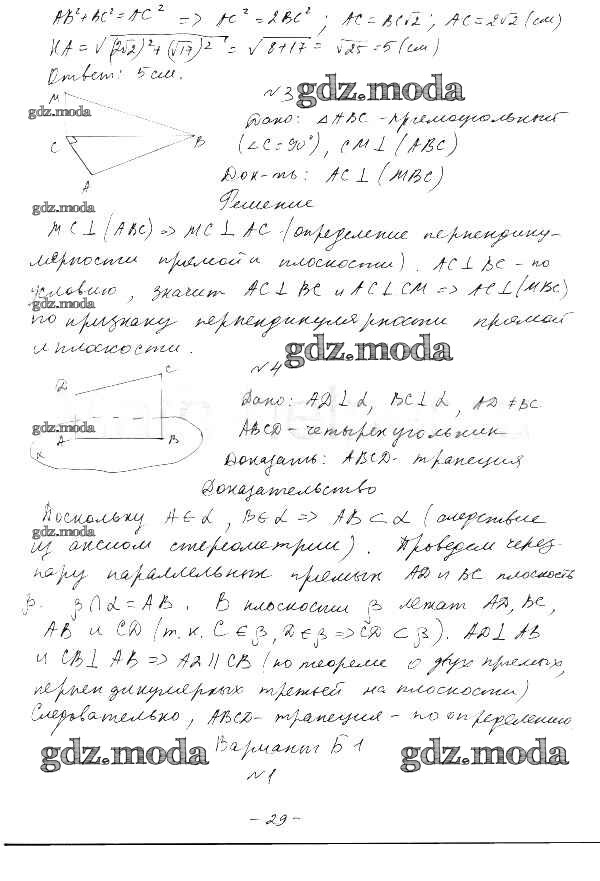 AB²+BC²=AC² => AC²=2BC²; AC=BC√2; AC=2√2 (см)
KA=√((2√2)²+(√17)²)=√(8+17)=√25=5(см)
Ответ: 5см.
№3 gdz.moda
M
gdz.moda
Дано: △ABC - прямоугольный
C B
(∠C=90°), CM⊥(ABC)
A
Док-ть: AC⊥(MBC)
gdz.moda
Решение
MC⊥(ABC) => MC⊥AC (определение перпендику-
лярности прямой и плоскости). AC⊥BC - по
условию, значит AC⊥BC и AC⊥CM => AC⊥(MBC)
gdz.moda
по признаку перпендикулярности прямой
и плоскости.
gdz.moda
№4
C
D
Дано: AD⊥α, BC⊥α, AD≠BC
gdz.moda
A B
ABCD - четырехугольник
α
Доказать: ABCD - трапеция
Доказательство
Поскольку A∈α, B∈α => AB⊂α (следствие
gdz.moda
из аксиом стереометрии). Проведем через
пару параллельных прямых AD и BC плоскость
β. β∩α=AB. В плоскости β лежат AD, BC,
AB и CD (т.к. C∈β, D∈β => CD⊂β). AD⊥AB
и CB⊥AB => AD||CB (по теореме о двух прямых,
перпендикулярных третьей на плоскости)
Следовательно, ABCD - трапеция - по определению.
Вариант Б1
gdz.moda gdz.moda
№1
- 29 -